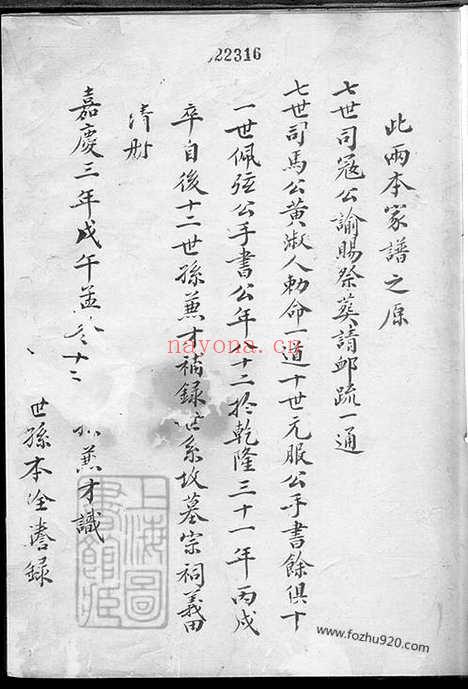 22316
此兩本家譜之原
七世司寇公諭賜祭葵請卹疏一通
七世司馬公黃淑人勅命一道十世元服公手書餘俱十
一世佩弦公手書公年七十二於乾隆三十一年丙戌
卒自後十二世孫蕙才補錄世系坟墓宗祠義田
清册
嘉慶三年戊午孟 十二 蕙才識
世孫本淦謄錄
上海圖書館藏
nayona.cn
www.fozhu920.com